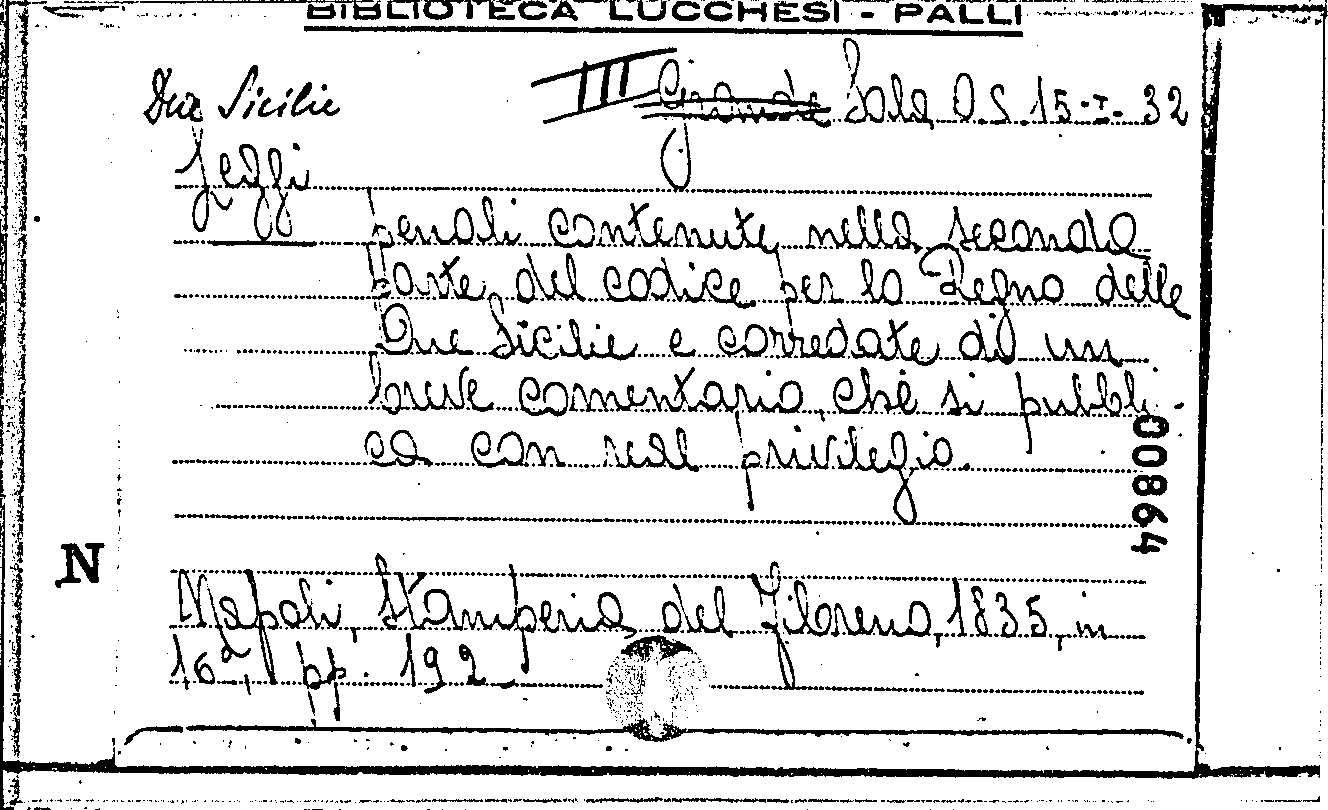 BIBLIOTECA LUCCHESI - PALLI
Due Sicilie
III Grande Sala O.S. 15-I-32
Leggi
penali contenute nella seconda
parte del codice per lo Regno delle
Due Sicilie e corredate di un
breve comentario, che si pubbli-
ca con real privilegio.
00864
N
Napoli, Stamperia del Fibreno, 1835, in
16º, pp. 192